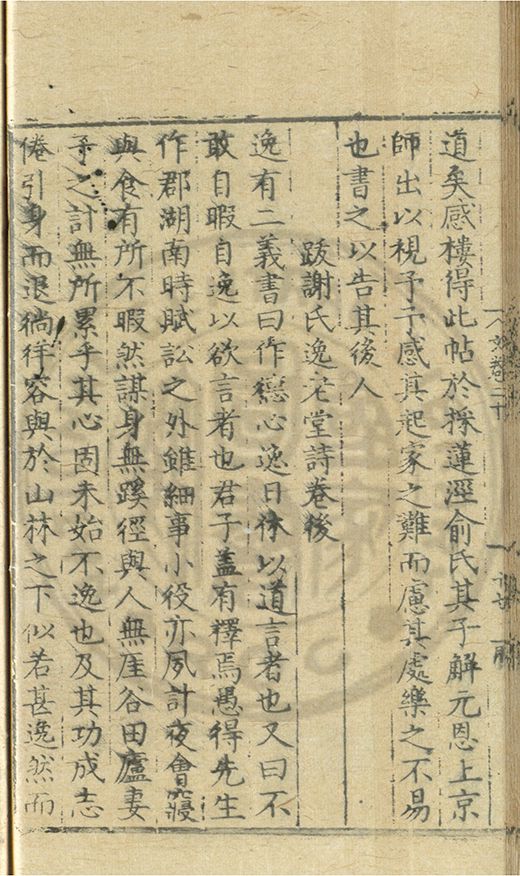 道矣感樓得此帖於採蓮涇俞氏其子解元恩上京
師出以視予予感其起家之難而慮其處樂之不易
也書之以告其後人
跋謝氏逸老堂詩卷後
逸有二義書曰作德心逸日休以道言者也又曰不
敢自暇自逸以欲言者也君子蓋有擇焉愚得先生
作郡湖南時賦訟之外雖細事小役亦夙計夜會寢
與食有所不暇然謀身無蹊徑與人無厓谷田廬妻
子之計無所累乎其心固未始不逸也及其功成志
倦引身而退徜徉容與於山林之下似若甚逸然而
文卷二十